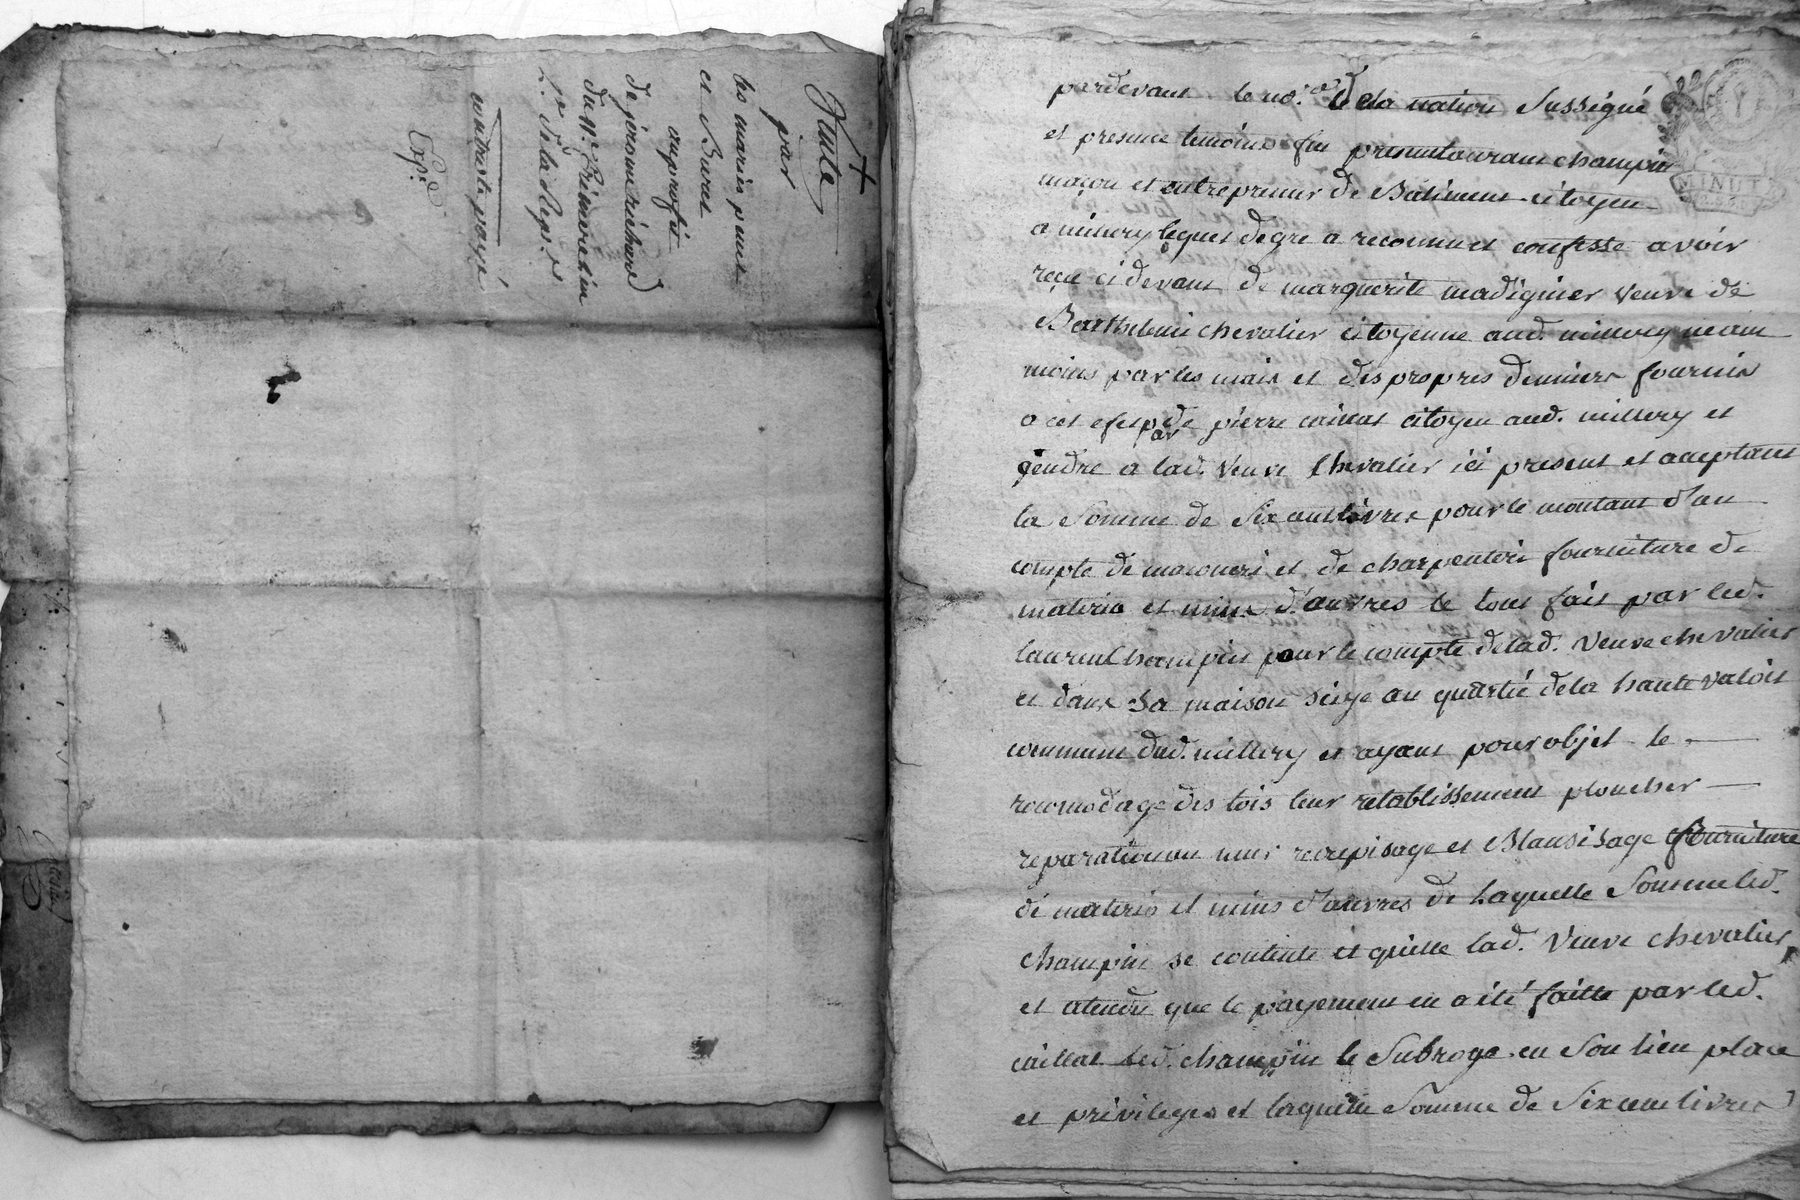 Vente
par
les mariés penet
et Buret
au profit
de jerosme richard
du 11e. frimere l'an
2e. de la Rep. f.e
controste payé
Exp.é
pardevant le no.re de la nation Sussigné
et presence temoins fut present laurant champin
maçon et entrepreneur de Batiment citoyen
a millery lequel de gre a reconnu et confesse avoir
reçu ci devant de marguerite madignier veuve de
Barthelemie chevalier citoyenne aud. millery neam
moins par les mais et des propres denniers fournis
a cet efet par de pierre caillat citoyen aud. millery et
gendre a lad. veuve Chevalier ici present et aceptant
la Somme de Six cent livres pour le montant d'un
compte de maconeri et de charpenteri fourniture de
materio et mins d'auvres le tout fait par led.
laurent Champin pour le compte de lad. veuve chevalier
et dans Sa maison Seize au quartié de la haute valois
commune dud. millery et ayant pour objet le
racomodage des tois leur retablissement ploucher
reparation au mur recrepisage et Blansisage fourniture
de materio et mins d'auvres de Laquelle Somme led.
Champin se contente et quitte lad. veuve chevalier
et atendu que le payement en a été faitte par led.
caillat led. champin le Subroge en Son lieu place
et privileges et laquelle Somme de Six cent livres
MINUT